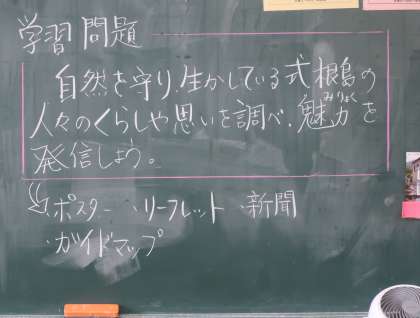 学習問題
自然を守り、生かしている式根島の
人々のくらしや思いを調べ、魅力を
みりょく
発信しよう。
・ポスター ・リーフレット ・新聞
・ガイドマップ